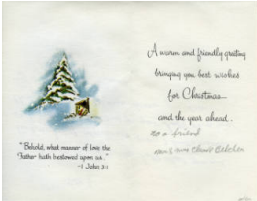 "Behold, what manner of love the
Father hath bestowed upon us."
-I John 3:1
A warm and friendly greeting
bringing you best wishes
for Christmas
and the year ahead..
to a friend